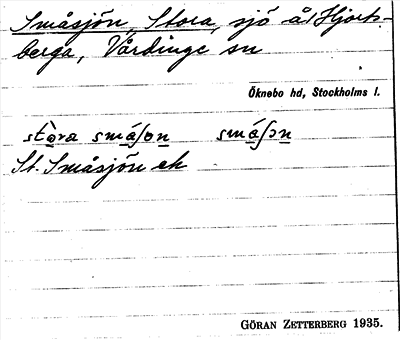 Småsjön, Stora, sjö å Hjorts-
berga, Vårdinge sn
Öknebo hd, Stockholms l.
stòra smáʃøn smáʃɔn
St. Småsjön ek
GÖRAN ZETTERBERG 1935.